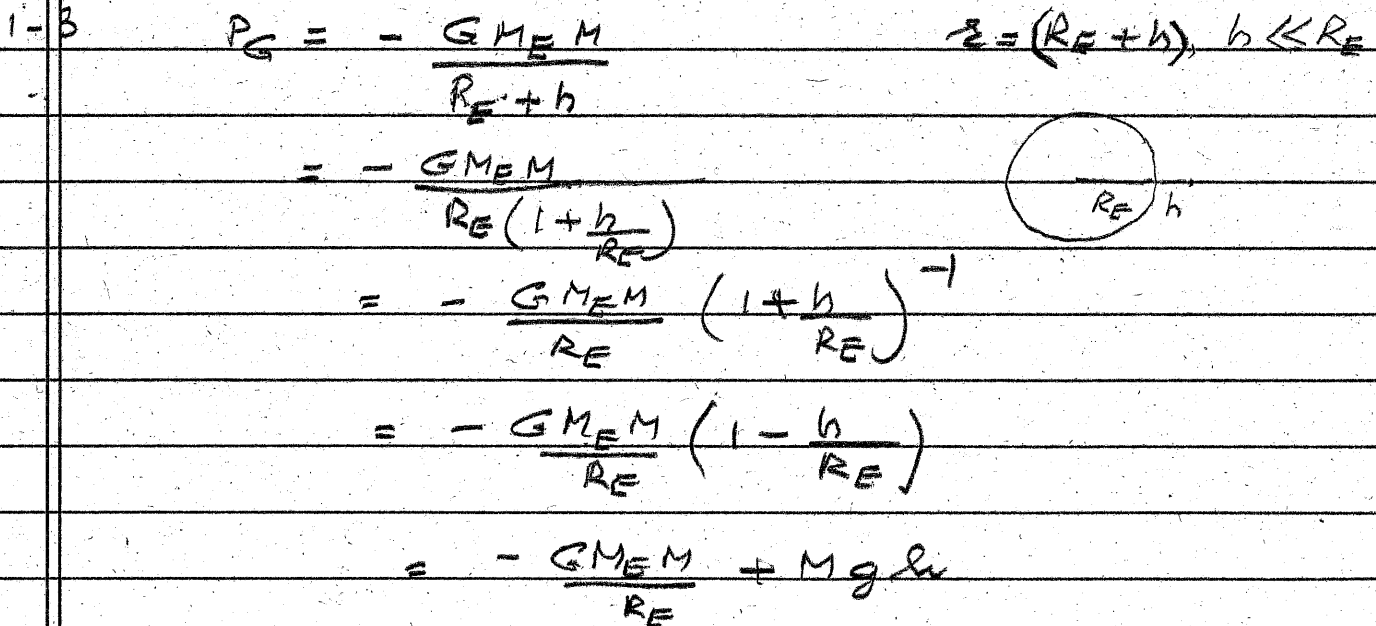 1-3 P_G = - \frac{G M_E M}{R_E + h} r = (R_E + h), h << R_E
= - \frac{G M_E M}{R_E (1 + \frac{h}{R_E})}
R_E h
= - \frac{G M_E M}{R_E} (1 + \frac{h}{R_E})^{-1}
= - \frac{G M_E M}{R_E} (1 - \frac{h}{R_E})
= - \frac{G M_E M}{R_E} + M g h